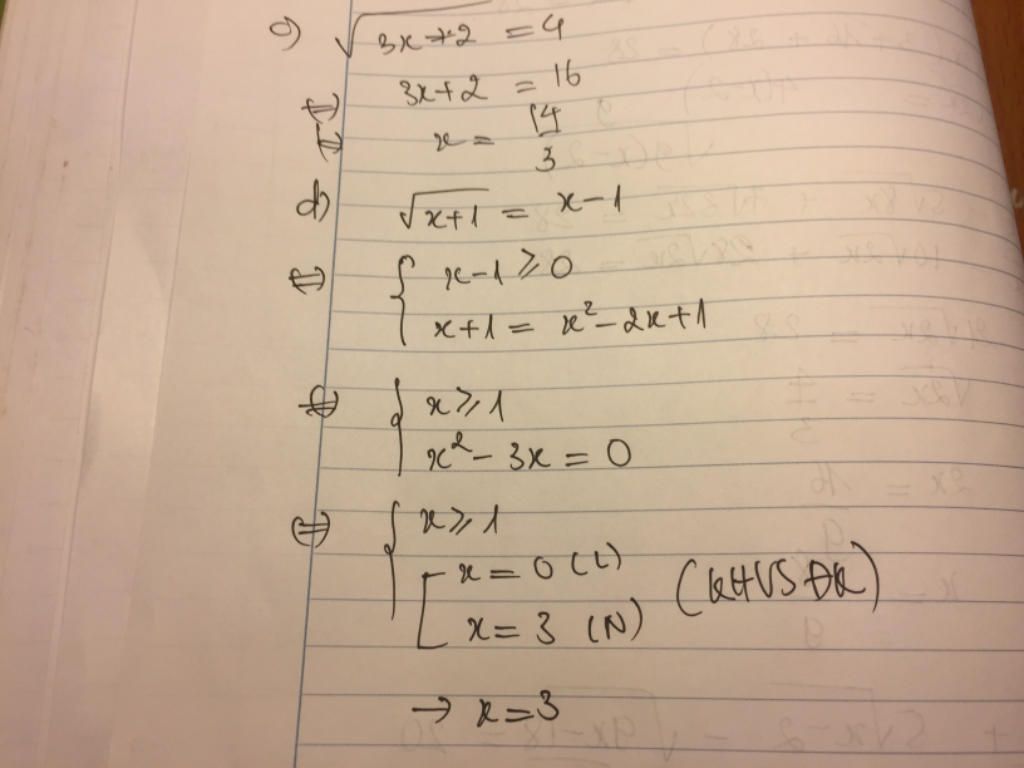 c) √3x+2 = 4
⇔ 3x+2 = 16
⇔ x = 14/3
d) √x+1 = x-1
⇔ { x-1 ≥ 0
x+1 = x²-2x+1
⇔ { x ≥ 1
x² - 3x = 0
⇔ { x ≥ 1
[ x = 0 (L)
x = 3 (N) (KHVS ĐK)
→ x = 3